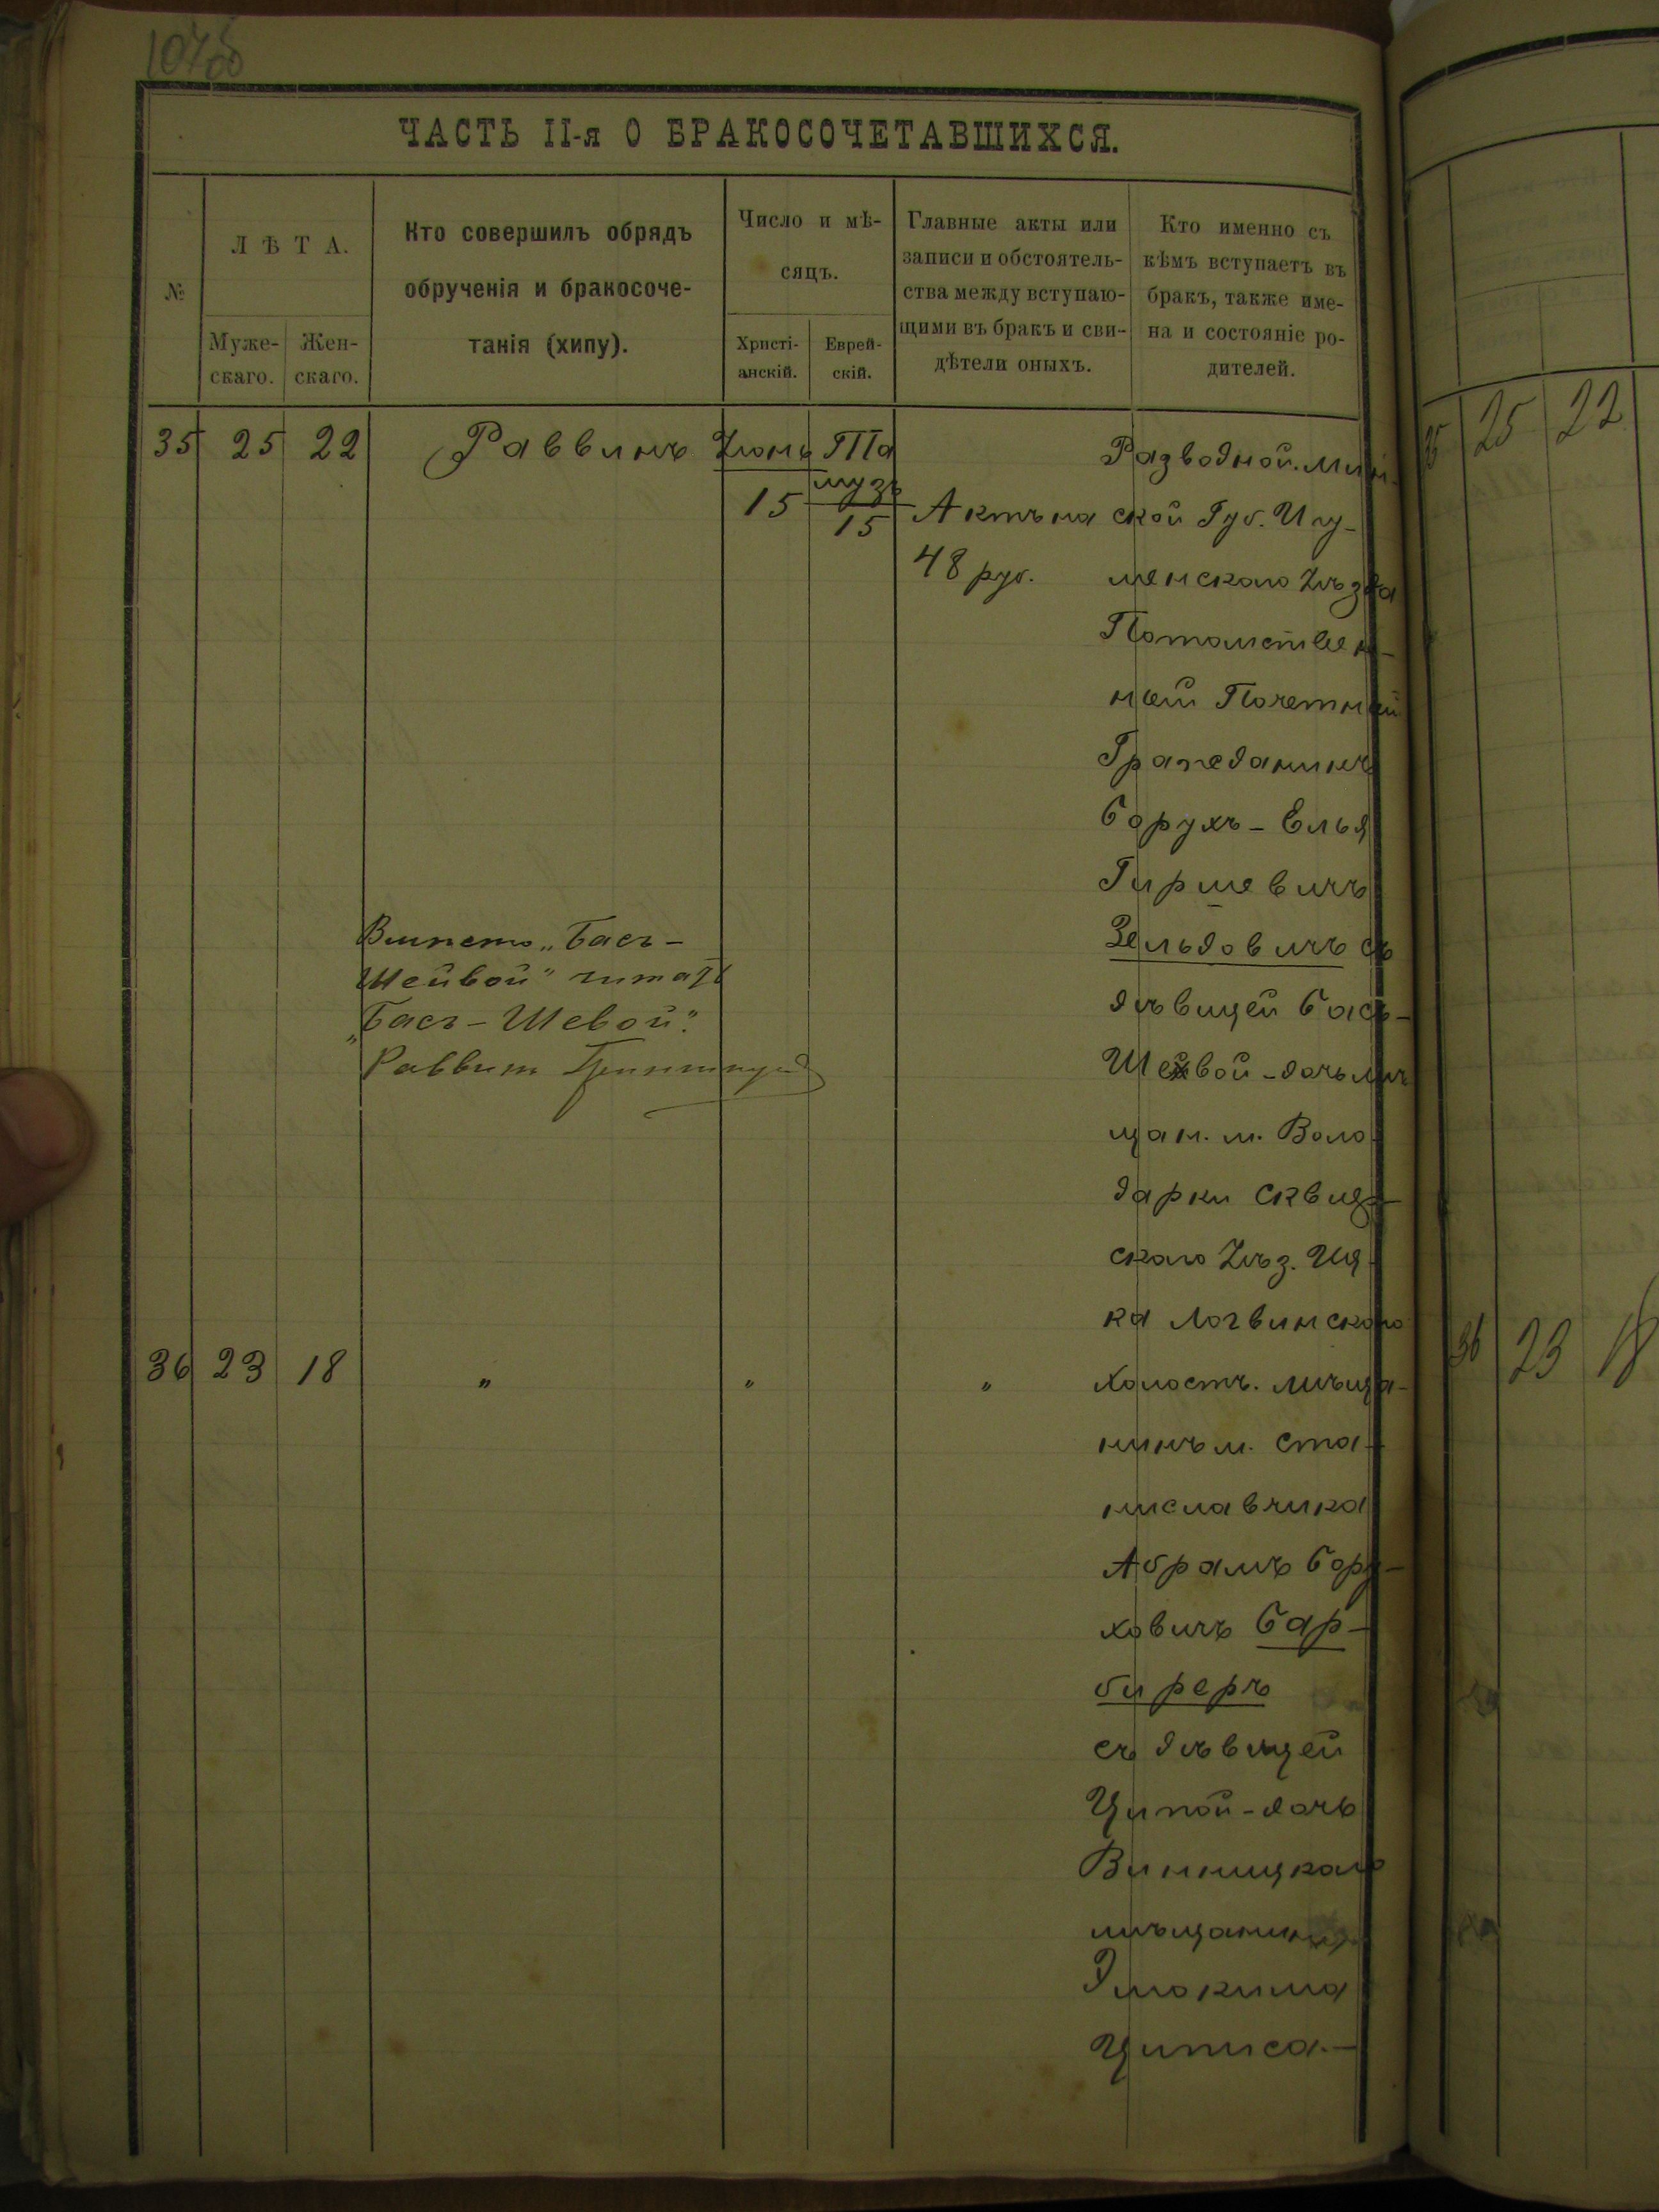 107об
ЧАСТЬ II-я О БРАКОСОЧЕТАВШИХСЯ.
№
ЛѢТА.
Муже-
скаго.
Жен-
скаго.
Кто совершилъ обрядъ
обрученія и бракосоче-
танія (хипу).
Число и мѣ-
сяцъ.
Христі-
анскій.
Еврей-
скій.
Главные акты или
записи и обстоятель-
ства между вступаю-
щими въ бракъ и сви-
дѣтели оныхъ.
Кто именно съ
кѣмъ вступаетъ въ
бракъ, также име-
на и состояніе ро-
дителей.
35 25 22
Раввинъ
Іюнь
15
Та
музъ
15
Актъ на
48 руб.
Разводной. Мин-
ской Губ. Игу-
менскаго Уѣзда
Потомствен-
ный Почетный
Гражданинъ
Борухъ-Елья
Гиршевичъ
Зельдовичъ съ
дѣвицей Бась-
Шейвой-дочь мѣ
щан. м. Воло-
дарки Сквир-
скаго Уѣз. Иц
ка Логвинскаго
Вмѣсто „Бась-
Шейвой" читать
„Бась-Шевой".
Раввинъ
36 23 18
" " "
Холостъ. мѣща-
нинъ м. Ста-
ниславчика
Абрамъ Бору-
ховичъ Бар-
биреръ
съ дѣвицей
Ципой-дочь
Винницкаго
мѣщанина
Эліокима
Циписа.-
35 25 22
36 23 18